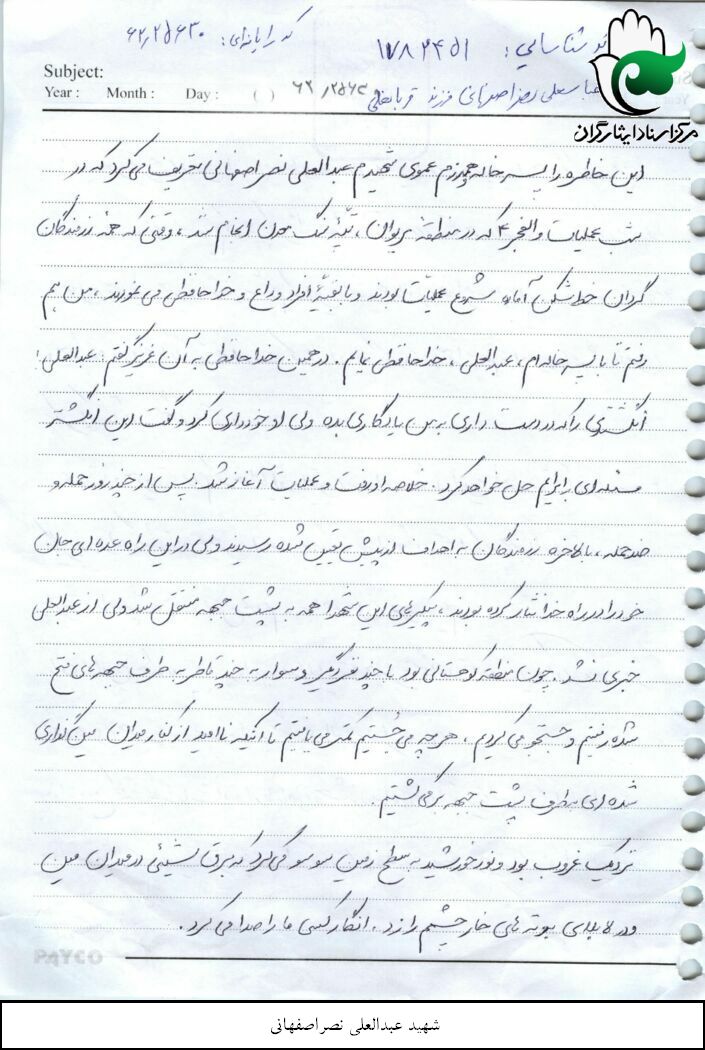 کد رایانه‌ای: ۶۲,۲۵۶۳۰
کد شناسایی: ۱۷۸۲۴۵۱
Subject:
Year : Month : Day : ( )
فرزند قربانعلی
مرکز اسناد ایثارگران
این خاطره را پسر خاله و همرزم عموی شهیدم عبدالعلی نصراصفهانی تعریف می‌کرد که در
شب عملیات والفجر ۴ که در منطقه پریوان، انجام شد، وقتی که همه رزمندگان
گردان خط‌شکن آماده شروع عملیات بودند و با بقیه افراد وداع و خداحافظی می‌نمودند، من هم
رفتم تا با پسر خاله‌ام، عبدالعلی، خداحافظی نمایم. در حین خداحافظی به آن عزیز گفتم: عبدالعلی!
انگشتری را که در دست داری به من یادگاری بده ولی او خودداری کرد و گفت این انگشتر
مسئله‌ای برایم حل خواهد کرد. خلاصه او رفت و عملیات آغاز شد. پس از چند روز حمله و
ضدحمله، بالاخره رزمندگان به اهداف از پیش تعیین شده رسیدند ولی در این راه عده‌ای جان
خود را در راه خدا نثار کرده بودند، پیکرهای این شهدا همه به پشت جبهه منتقل شد ولی از عبدالعلی
خبری نشد. چون منطقه کوهستانی بود با چند نفر دیگر و سوار به چند قاطر به طرف جبهه‌های فتح
شده رفتیم و جستجو می‌کردیم، هر چه می‌جستیم کمتر می‌یافتیم تا آنکه ناامید از کنار میدان مین‌گذاری
شده‌ای به طرف پشت جبهه برمی‌گشتیم.
نزدیک غروب بود و نور خورشید به سطح زمین سوسو می‌کرد که برق شیئی در میدان مین
و در لابلای بوته‌های خار چشمم را زد. انگار کسی ما را صدا می‌کرد.
PAYCO
شهید عبدالعلی نصراصفهانی